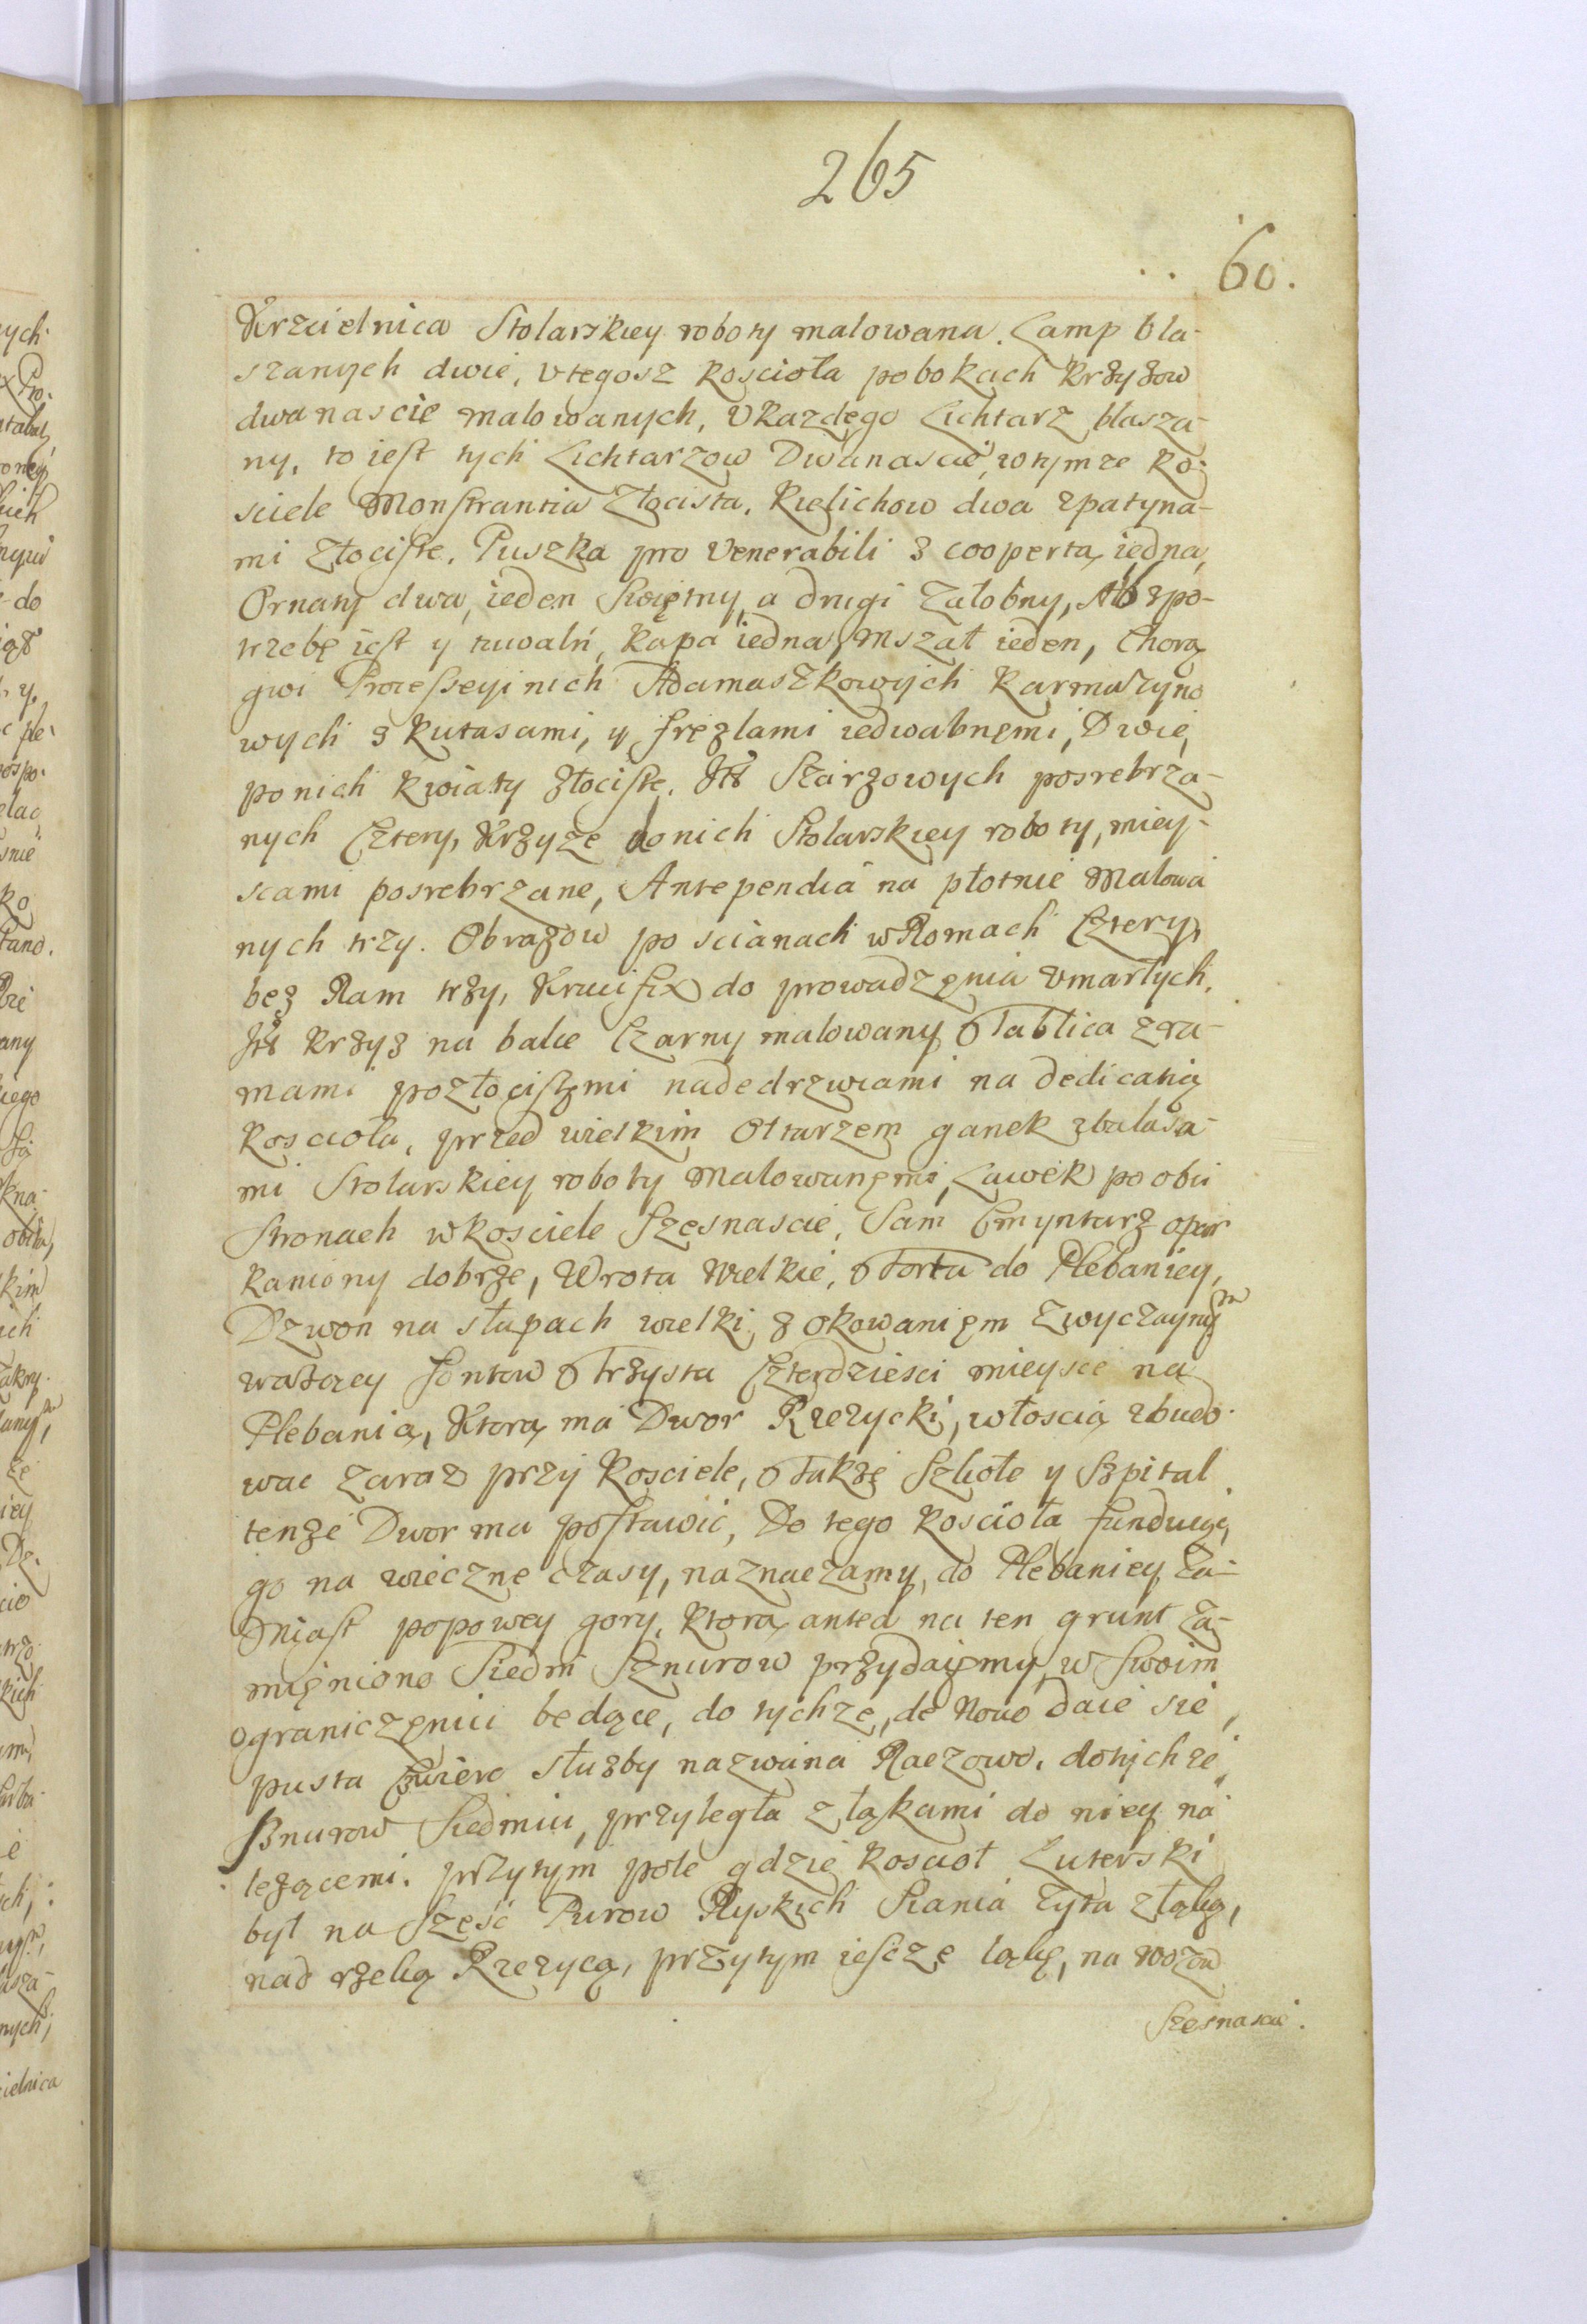 265
60.
Krzcielnica Stolarskiey roboty malowana. Lamp bla-
szanych dwie, v tegosz kosciola po bokach krzyzow
dwanascie malowanych, V kazdego Lichtarz blasza-
ny, to iest tych Lichtarzow Dwanascie, w tymze Ko-
sciele Monstrantia Złocista, Kielichow dwa z patyna-
mi Złociste, Puszka pro Venerabili z cooperta iedna,
Ornaty dwa, ieden Swiętny a drugi Załobny, Alb z po-
trzebę iest y tuwalń, kapa iedna, Mszał ieden, Chorą
gwi Processyinich Adamaszkowych Karmazyno
wych z kutasami, y frezlami iedwabnęmi, Dwie,
po nich kwiaty złociste. Its Starzowych posrebrza-
nych Cztery, Krzyze do nich Stolarskiey roboty, miey-
scami posrebrzane, Antependia na płotnie Malowa
nych trzy. Obrazow po scianach w Romach Cztery,
bez Ram trzy, Krucifix do prowadzęnia vmarłych.
Its krzyz na balce Czarny malowany, Tablica z ra-
mami pozłocistęmi nade drzwiami na dedicatią
Kosciola, przed wielkim Ołtarzem ganek z balasa-
mi Stolarskiey roboty Malowanęmi, Lawek po obu
Stronach w kosciele Szesnascie, Sam Cmyntarz opar
kaniony dobrze, Wrota wielkie, Forta do Plebaniey,
Dzwon na słupach wielki, z okowanięm zwyczaynym
wazący fontow Trzysta Czterdziesci mieysce na
Plebanią, Ktorą ma Dwor Rzezycki, włoscią zbudo-
wac zaraz przy kosciele, Takze Szkołe y Szpital
tenze Dwor ma postawić, Do tego kosciola funduią
go na wieczne czasy, naznaczamy, do Plebaniey, za-
miast popowey gory, ktorą antea na ten grunt za-
mięniono Siedm Sznurow przydaięmy, w Swoim
ograniczęniu będące, do tychze, de Novo daie sie,
pusta Cwierc słuzby nazwana Raczowo, do tychze
Sznurow Siedmiu, przyległa z łąkami do niey na
lezącemi. przytym pole gdzie kosciol Luterski
był na Szesc Purow Ryskich Siania Zyta z łąką,
nad rzeką Rzezycą, przytym iescze łąkę, na wozow
Szesnascie.